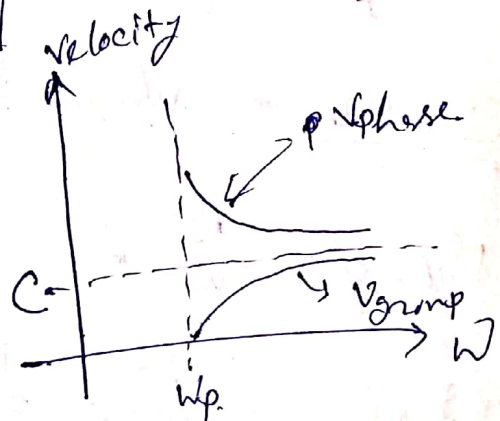 velocity
Vphase
C
Vgroup
W
Wp.